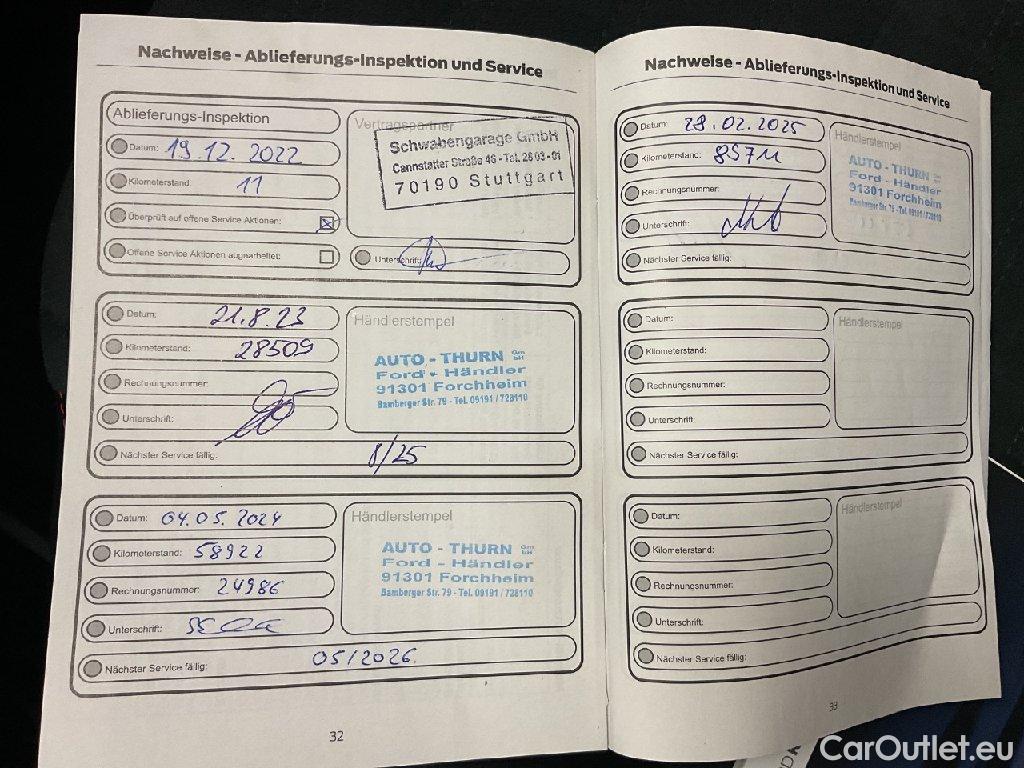 Nachweise - Ablieferungs-Inspektion und Service
Ablieferungs-Inspektion
Datum: 19.12.2022
Kilometerstand: 11
Überprüft auf offene Service Aktionen:
Offene Service Aktionen abgearbeitet:
Vertragspartner
Schwabengarage GmbH
Cannstatter Straße 46 - Tel. 28 03 - 01
70190 Stuttgart
Unterschrift:
Datum: 21.8.23
Kilometerstand: 28509
Rechnungsnummer:
Unterschrift:
Nächster Service fällig: 8/25
Händlerstempel
AUTO - THURN GmbH
Ford - Händler
91301 Forchheim
Bamberger Str. 79 - Tel. 09191 / 728110
Datum: 04.05.2024
Kilometerstand: 58922
Rechnungsnummer: 24986
Unterschrift:
Nächster Service fällig: 05/2026
Händlerstempel
AUTO - THURN GmbH
Ford - Händler
91301 Forchheim
Bamberger Str. 79 - Tel. 09191 / 728110
32
Nachweise - Ablieferungs-Inspektion und Service
Datum: 28.02.2025
Kilometerstand: 85711
Rechnungsnummer:
Unterschrift:
Nächster Service fällig:
Händlerstempel
AUTO - THURN GmbH
Ford - Händler
91301 Forchheim
Bamberger Str. 79 - Tel. 09191 / 728110
Datum:
Kilometerstand:
Rechnungsnummer:
Unterschrift:
Nächster Service fällig:
Händlerstempel
Datum:
Kilometerstand:
Rechnungsnummer:
Unterschrift:
Nächster Service fällig:
Händlerstempel
33
CarOutlet.eu